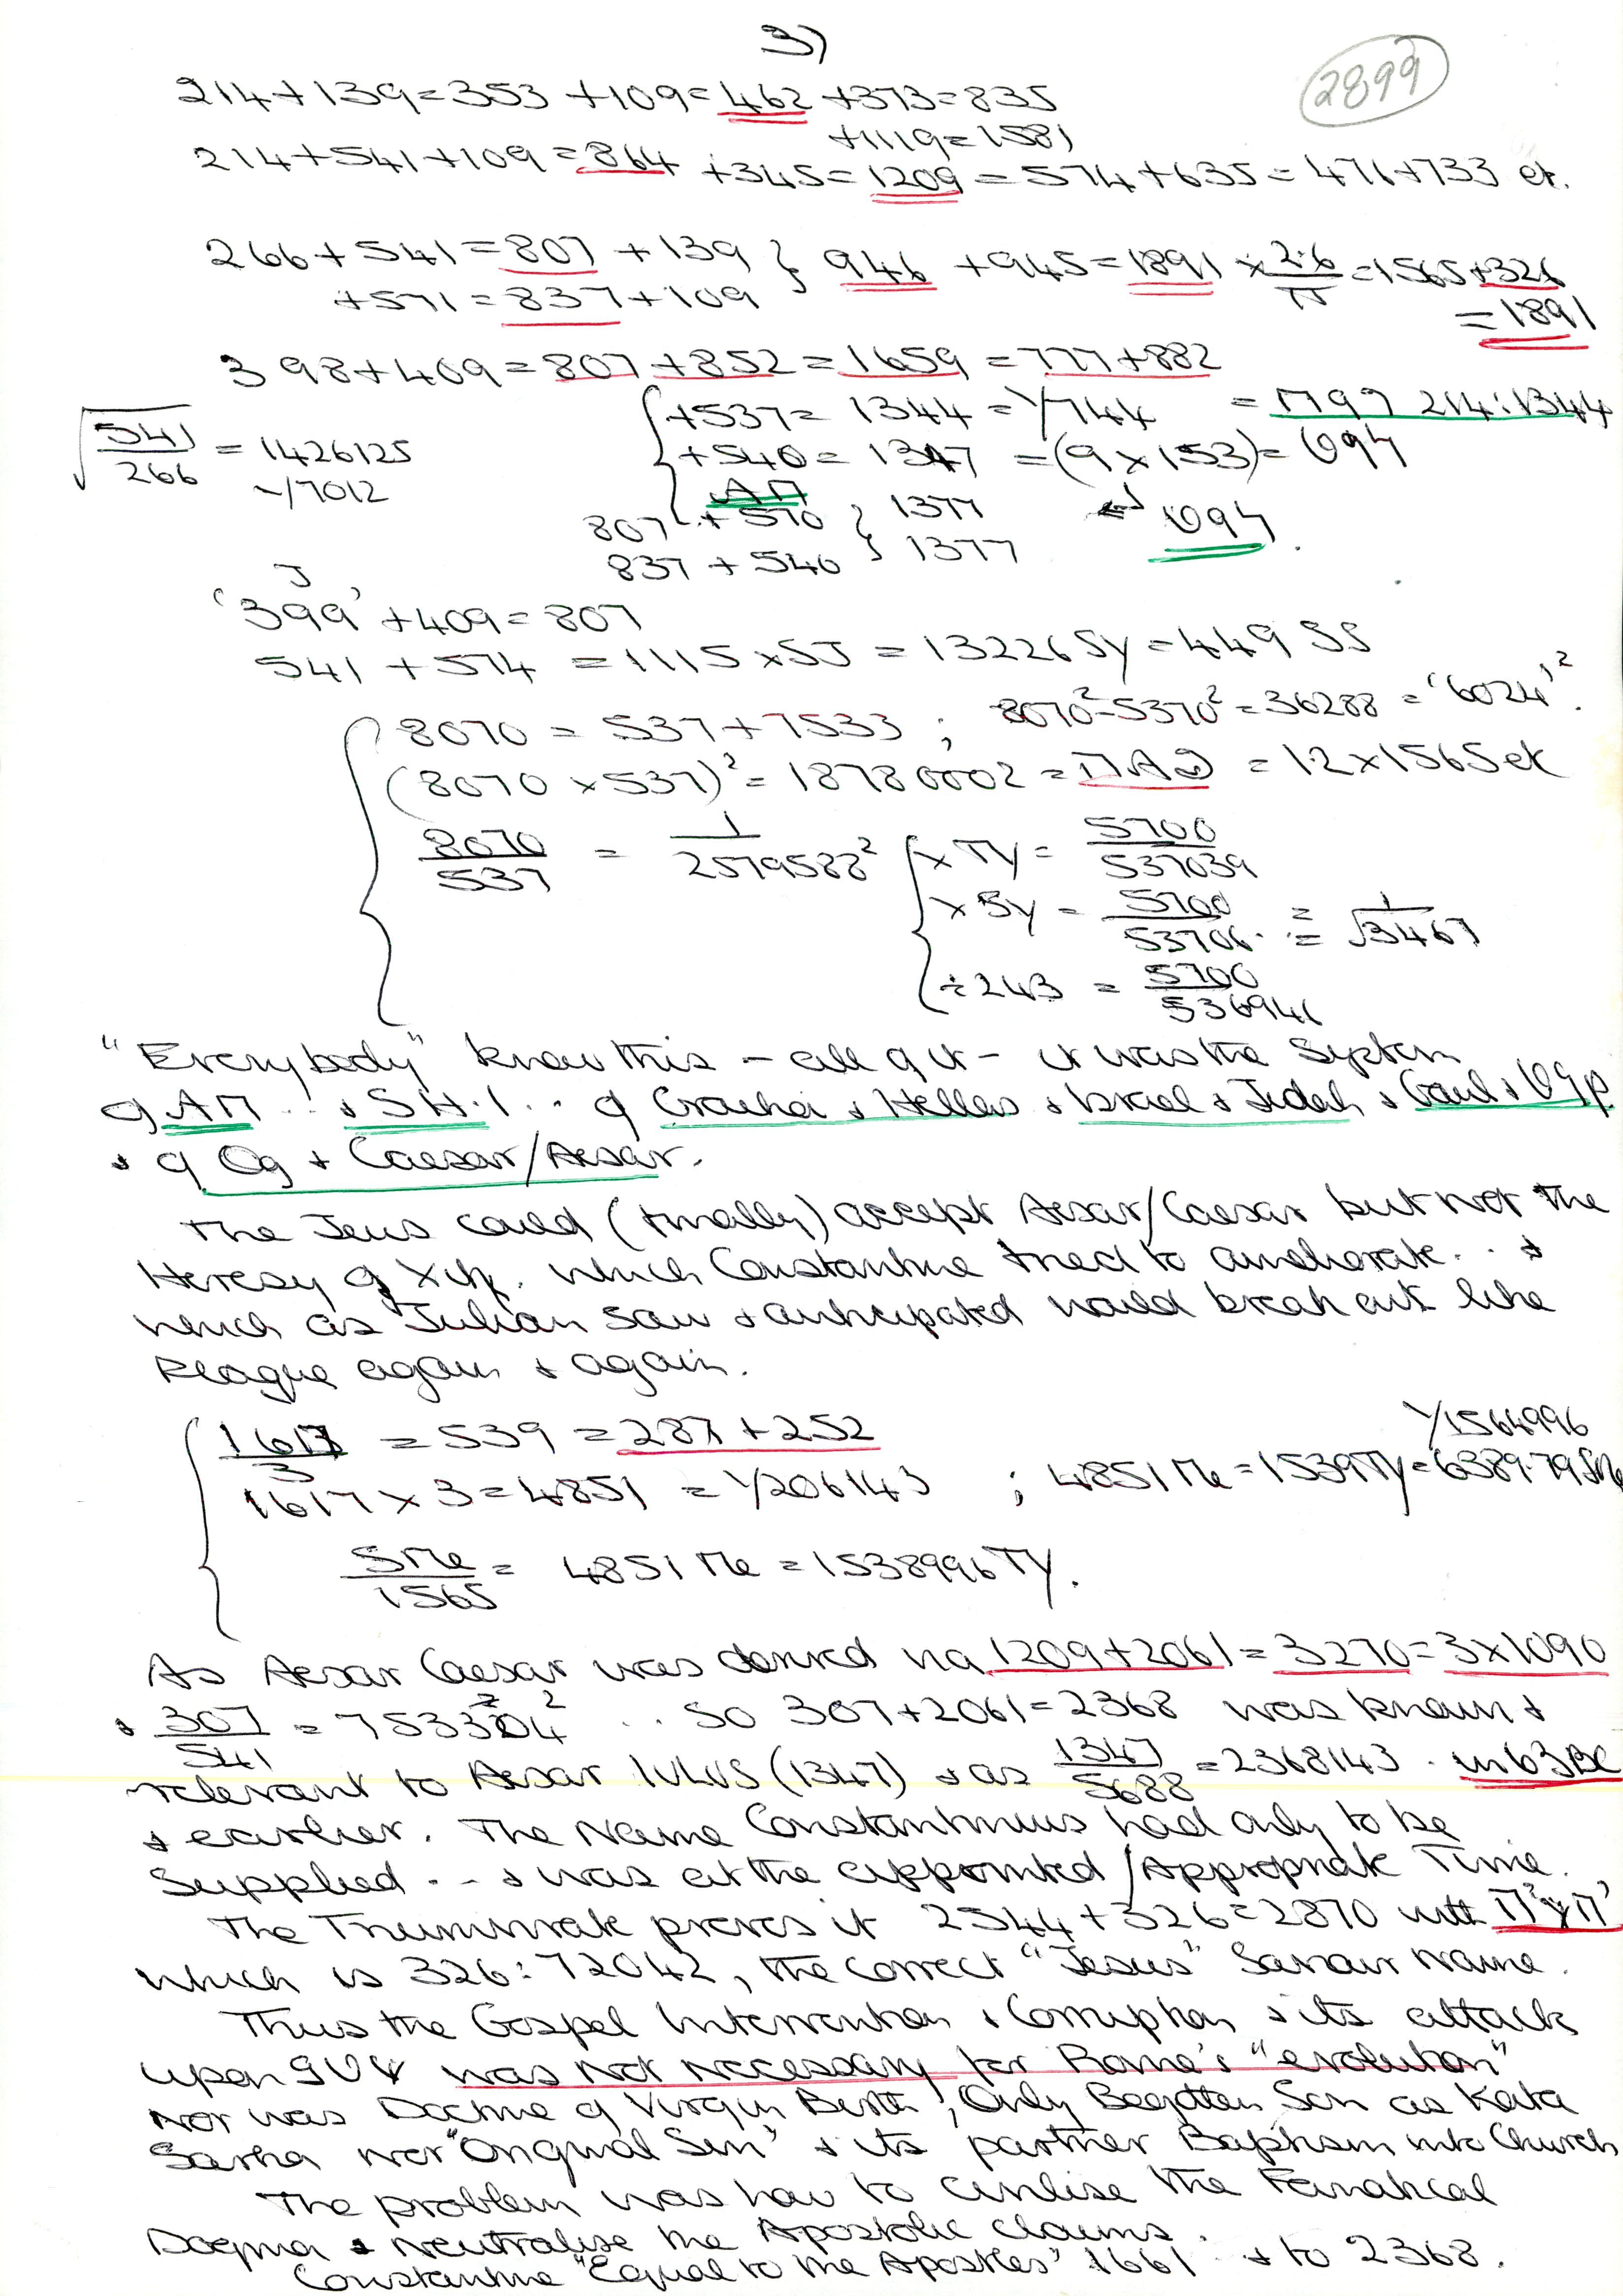 3)
2899
214+139=353 +109=462 +373=835
+1119=1581
214+541+109=864 +345=1209=574+635=476+733 et.
266+541=807 +139 } 946 +945=1891 × 2.6/π =1565+326
+571=837+109
=1891
398+409=807+852=1659=777+882
{+537= 1344 =1/744 = 214:1344
√541/266 = 1426125
+540= 1347 =(9×153)=
-1/7012
807 +570 } 1377
837 + 540 } 1377
J
'399' +409=807
541 +574 =1115×5J = 132265y=449 SS
8070 = 537+7533 ; 8070²-5370²=36288 = '6024'².
(8070 ×537)²=18780002= = 1.2×1565ek
8070/537 = 1/2579588² {×Ty= 5700/537039
×5y = 5700/53706. = 1/√3467
÷243 = 5700/536946
"Everybody" knew this - all of it - it was the System
of AM .. + SH.1 .. of + Hellas + Israel + Judah + Gaul +
+ of Og + Caesar/Aesar.
The Jews could (finally) accept Aesar/Caesar but not the
Heresy of Xity. which Constantine tried to ameliorate. . . +
which as Julian saw + anticipated would break out like
Plague again + again.
1617/3 = 539 = 287+252
1/1564996
1617×3=4851 = 1/206143 ; 4851Me=1539Ty=6389.79
5Me/1565 = 4851Me=1538996Ty.
As Aesar Caesar was derived via 1209+2061=3270=3×1090
+ 307/541 = 753304² .. so 307+2061=2368 was known +
relevant to Aesar IULUS (1347) + as 1347/5688 =2368143. in 63BC
+ earlier. The Name Constantinus had only to be
Supplied .. + was at the appointed/Appropriate Time.
The Triumvirate proves it 2544+326=2870 with
which is 326:72042, the correct "Jesus" Saviour Name.
Thus the Gospel Intervention + Corruption + its attack
upon was not necessary for Rome's "evolution"
Nor was Doctrine of Virgin Birth, Only Begotten Son as Kata
Sarka nor "Original Sin" + its partner Baptism into Church
The problem was how to civilise the Fanatical
Dogma + neutralise the Apostolic claims.
Constantine "Equal to the Apostles" 1661 + to 2368.